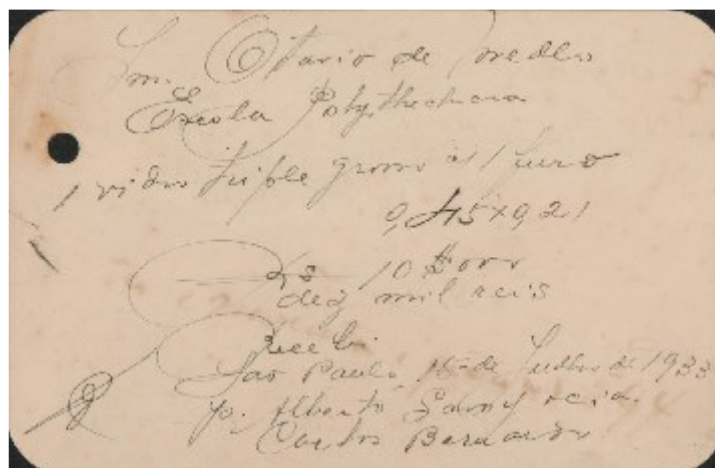 Snr. Otavio de
Escola Polythechnica
1 vidro triple grosso c/ 1 furo
0,45 x 0,21
Rs 10$000
dez mil reis
Recebi
Sao Paulo, 15 de Julho de 1933
p. Alberto
Carlos Bernardo